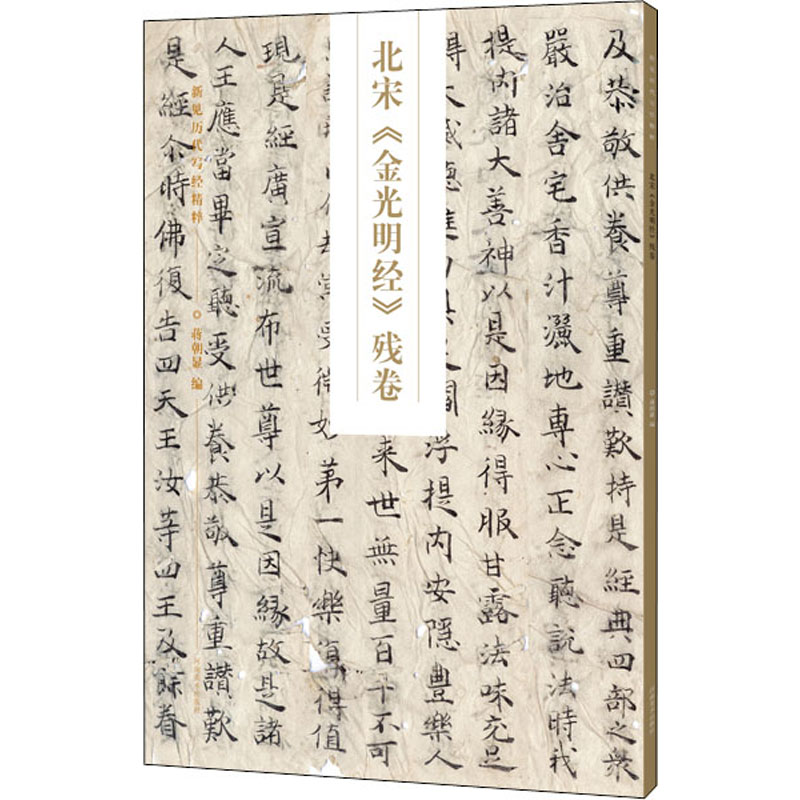 北宋《金光明经》残卷
新见历代写经精粹
蒋朝显 编
及恭敬供養尊重讚歎持是經典四部之衆
嚴治舍宅香汁灑地專心正念聽説法時我
提内諸大善神以是因緣得服甘露法味充足
得大威德 浮提内安隱豐樂人
来世無量百千不可
受微妙第一快樂 得值
現是經廣宣流布世尊以是因緣故是諸
人王應當畢定聽受供養恭敬尊重讚歎
是經尒時佛復告四天王汝等四王及餘眷
北宋《金光明经》残卷